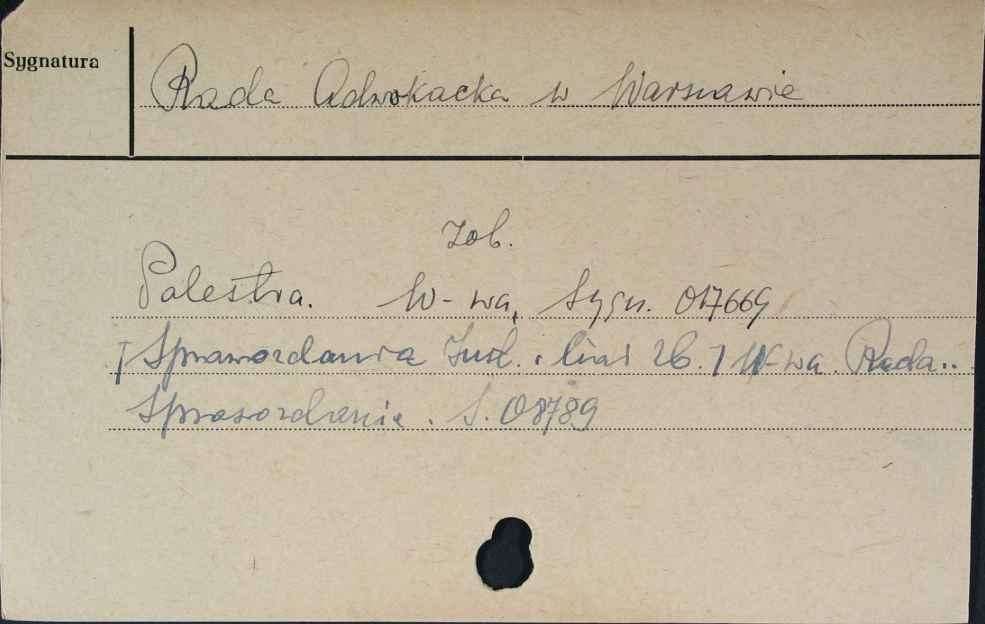 Sygnatura
Rada Adwokacka w Warszawie
Zob.
Palestra. W-wa, Sygn. 017669
[Sprawozdania Inst. i 26.] W-wa. Rada..
Sprawozdanie. S. 08789